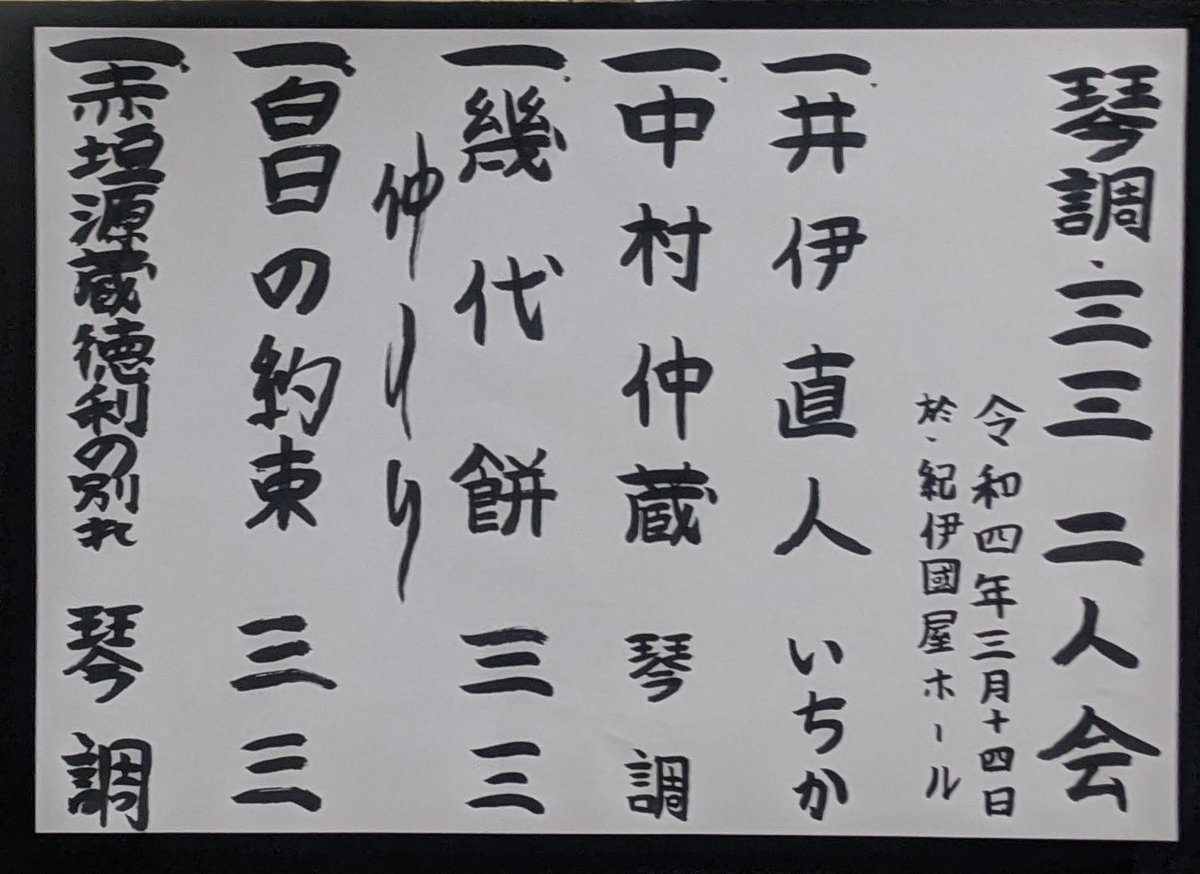 琴調・三三 二人会
令和四年三月十四日
於・紀伊國屋ホール
一、井伊直人 いちか
一、中村仲蔵 琴調
一、幾代餅 三三
仲入り
一、白日の約束 三三
一、赤垣源蔵徳利の別れ 琴調